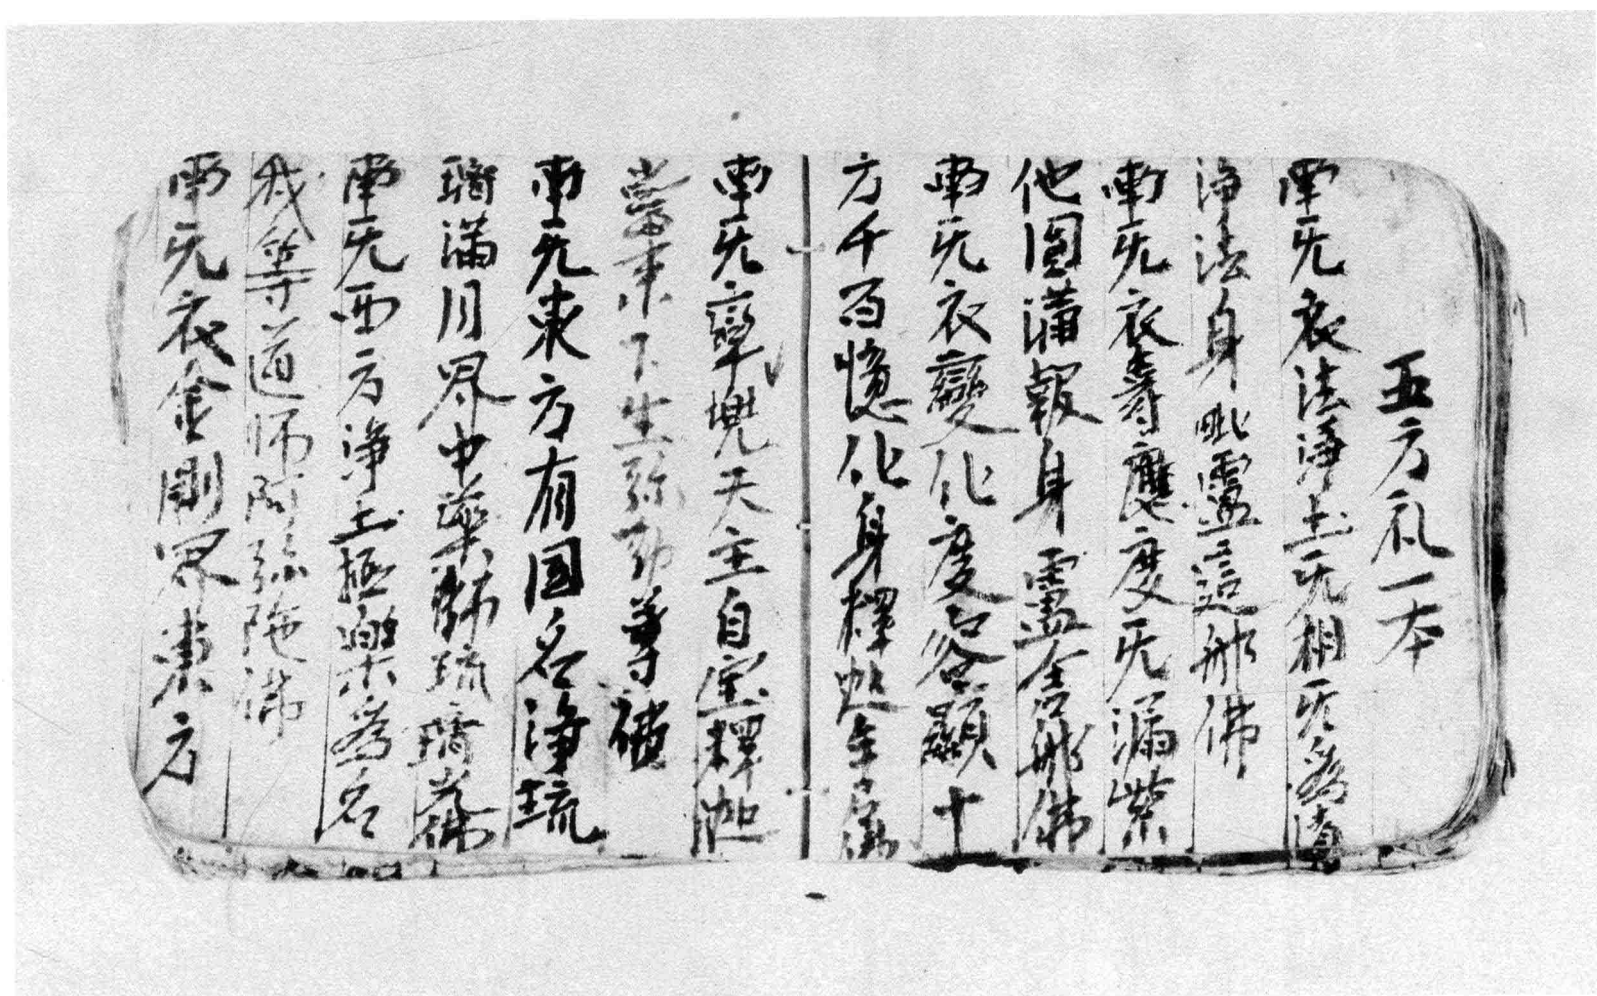 五方礼一本
南无衣法浄土无相无為真
浄法身毗盧這那佛
南无衣壽應度无漏紫
他圓滿報身盧舍那佛
南无衣變化度容顯十
方千百憶化身釋迦牟尼佛
南无率兜天主自宝釋迦
當来下生弥勒尊佛
南无東方有国名浄琉
璃滿月界中藥師琉璃光佛
南无西方浄土極樂為名
我等道师阿弥陁佛
南无衣金剛界東方